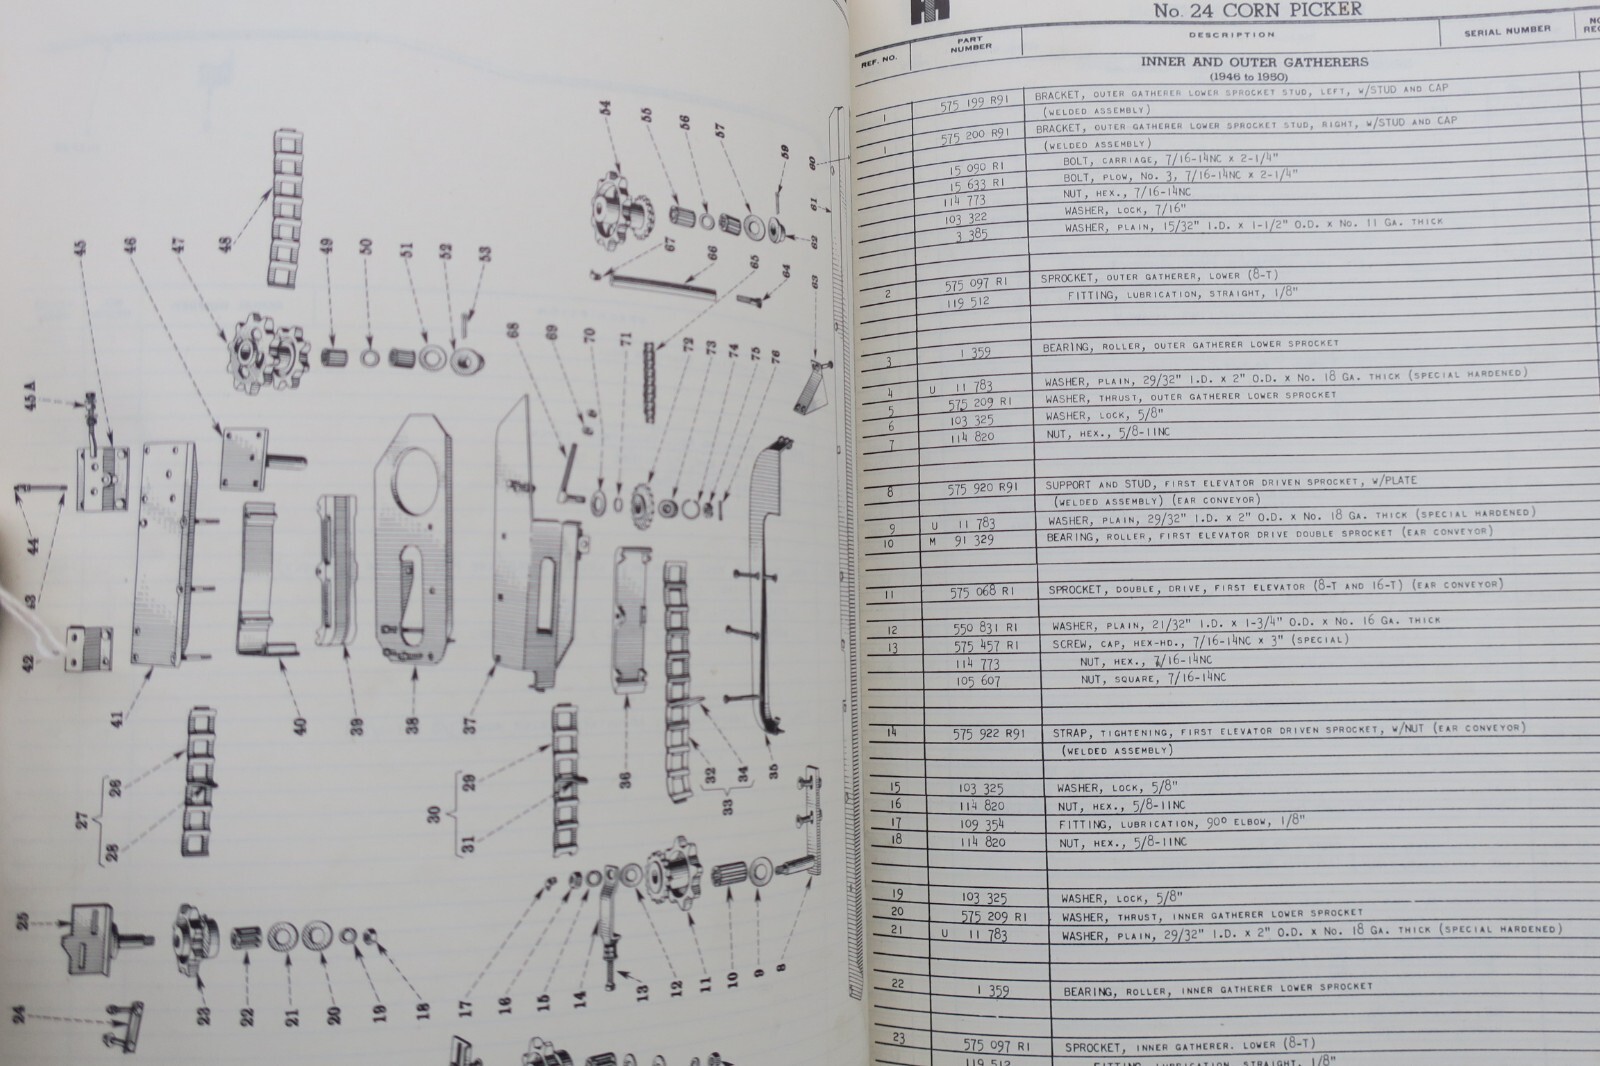 54
55
56
57
59
60
61
62
63
64
65
66
67
45
46
47
48
49
50
51
52
53
45A
68
69
70
71
72
73
74
75
76
44
43
42
41
40
39
38
37
36
35
34
33
32
27
26
28
30
29
31
25
24
23
22
21
20
19
18
17
16
15
14
13
12
11
10
9
8
IH
No. 24 CORN PICKER
REF. NO. PART NUMBER DESCRIPTION SERIAL NUMBER
INNER AND OUTER GATHERERS
(1946 to 1950)
1 575 199 R91 BRACKET, OUTER GATHERER LOWER SPROCKET STUD, LEFT, W/STUD AND CAP
(WELDED ASSEMBLY)
1 575 200 R91 BRACKET, OUTER GATHERER LOWER SPROCKET STUD, RIGHT, W/STUD AND CAP
(WELDED ASSEMBLY)
15 090 R1 BOLT, CARRIAGE, 7/16-14NC x 2-1/4"
15 633 R1 BOLT, PLOW, No. 3, 7/16-14NC x 2-1/4"
114 773 NUT, HEX., 7/16-14NC
103 322 WASHER, LOCK, 7/16"
3 385 WASHER, PLAIN, 15/32" I.D. x 1-1/2" O.D. x No. 11 GA. THICK
2 575 097 R1 SPROCKET, OUTER GATHERER, LOWER (8-T)
119 512 FITTING, LUBRICATION, STRAIGHT, 1/8"
3 1 359 BEARING, ROLLER, OUTER GATHERER LOWER SPROCKET
4 U 11 783 WASHER, PLAIN, 29/32" I.D. x 2" O.D. x No. 18 GA. THICK (SPECIAL HARDENED)
5 575 209 R1 WASHER, THRUST, OUTER GATHERER LOWER SPROCKET
6 103 325 WASHER, LOCK, 5/8"
7 114 820 NUT, HEX., 5/8-11NC
8 575 920 R91 SUPPORT AND STUD, FIRST ELEVATOR DRIVEN SPROCKET, W/PLATE
(WELDED ASSEMBLY) (EAR CONVEYOR)
9 U 11 783 WASHER, PLAIN, 29/32" I.D. x 2" O.D. x No. 18 GA. THICK (SPECIAL HARDENED)
10 M 91 329 BEARING, ROLLER, FIRST ELEVATOR DRIVE DOUBLE SPROCKET (EAR CONVEYOR)
11 575 068 R1 SPROCKET, DOUBLE, DRIVE, FIRST ELEVATOR (8-T AND 16-T) (EAR CONVEYOR)
12 550 831 R1 WASHER, PLAIN, 21/32" I.D. x 1-3/4" O.D. x No. 16 GA. THICK
13 575 457 R1 SCREW, CAP, HEX-HD., 7/16-14NC x 3" (SPECIAL)
114 773 NUT, HEX., 7/16-14NC
105 607 NUT, SQUARE, 7/16-14NC
14 575 922 R91 STRAP, TIGHTENING, FIRST ELEVATOR DRIVEN SPROCKET, W/NUT (EAR CONVEYOR)
(WELDED ASSEMBLY)
15 103 325 WASHER, LOCK, 5/8"
16 114 820 NUT, HEX., 5/8-11NC
17 109 354 FITTING, LUBRICATION, 90° ELBOW, 1/8"
18 114 820 NUT, HEX., 5/8-11NC
19 103 325 WASHER, LOCK, 5/8"
20 575 209 R1 WASHER, THRUST, INNER GATHERER LOWER SPROCKET
21 U 11 783 WASHER, PLAIN, 29/32" I.D. x 2" O.D. x No. 18 GA. THICK (SPECIAL HARDENED)
22 1 359 BEARING, ROLLER, INNER GATHERER LOWER SPROCKET
23 575 097 R1 SPROCKET, INNER GATHERER. LOWER (8-T)
119 512 FITTING, LUBRICATION, STRAIGHT, 1/8"